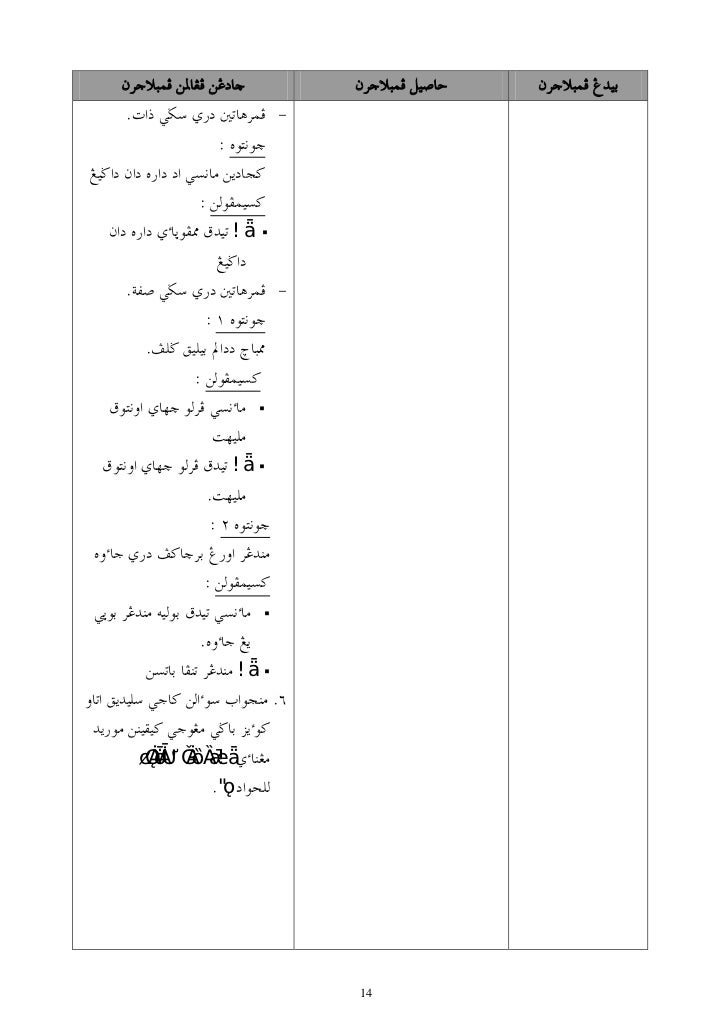 بيدڠ ڤمبلاجرن	حاصيل ڤمبلاجرن	جادڠن ڤڠالمن ڤمبلاجرن
- ڤمرهاتين دري سڬي ذات.
چونتوه :
كجادين مانسي اد داره دان داݢيڠ
كسيمڤولن :
▪ ! تيدق ممڤوياٴي داره دان
داݢيڠ
- ڤمرهاتين دري سڬي صفة.
چونتوه ١ :
ممباچ ددالم بيليق ݢلڤ.
كسيمڤولن :
▪ ماٴنسي ڤرلو چهاي اونتوق
مليهت
▪ ! تيدق ڤرلو چهاي اونتوق
مليهت.
چونتوه ٢ :
مندڠر اورڠ برچاكڤ دري جاٴوه
كسيمڤولن :
▪ ماٴنسي تيدق بوليه مندڠر بوڽي
يڠ جاٴوه.
▪ ! مندڠر تنڤا باتسن
٦. منجواب سوٴالن كاجي سليديق اتاو
كوٴيز باݢي مڠوجي كيقينن موريد
مڠناٴي
للحواد".
14